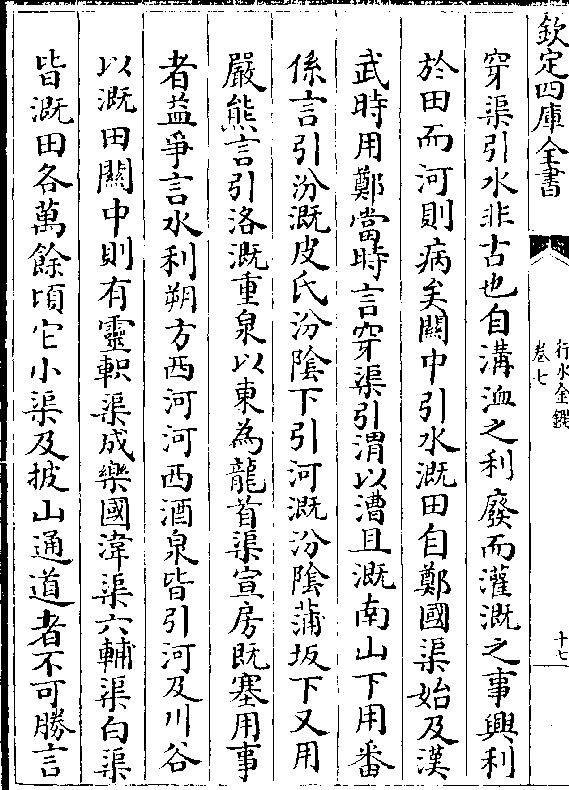 欽定四庫全書
行水金鑑
卷七
十七
穿渠引水非古也自溝洫之利廢而灌溉之事興利
於田而河則病矣關中引水溉田自鄭國渠始及漢
武時用鄭當時言穿渠引渭以漕且溉南山下用番
係言引汾溉皮氏汾隂下引河溉汾隂蒲坂下又用
嚴熊言引洛溉重泉以東為龍首渠宣房既塞用事
者益爭言水利朔方西河河西酒泉皆引河及川谷
以溉田關中則有靈軹渠成樂國湋渠六輔渠白渠
皆溉田各萬餘頃它小渠及披山通道者不可勝言